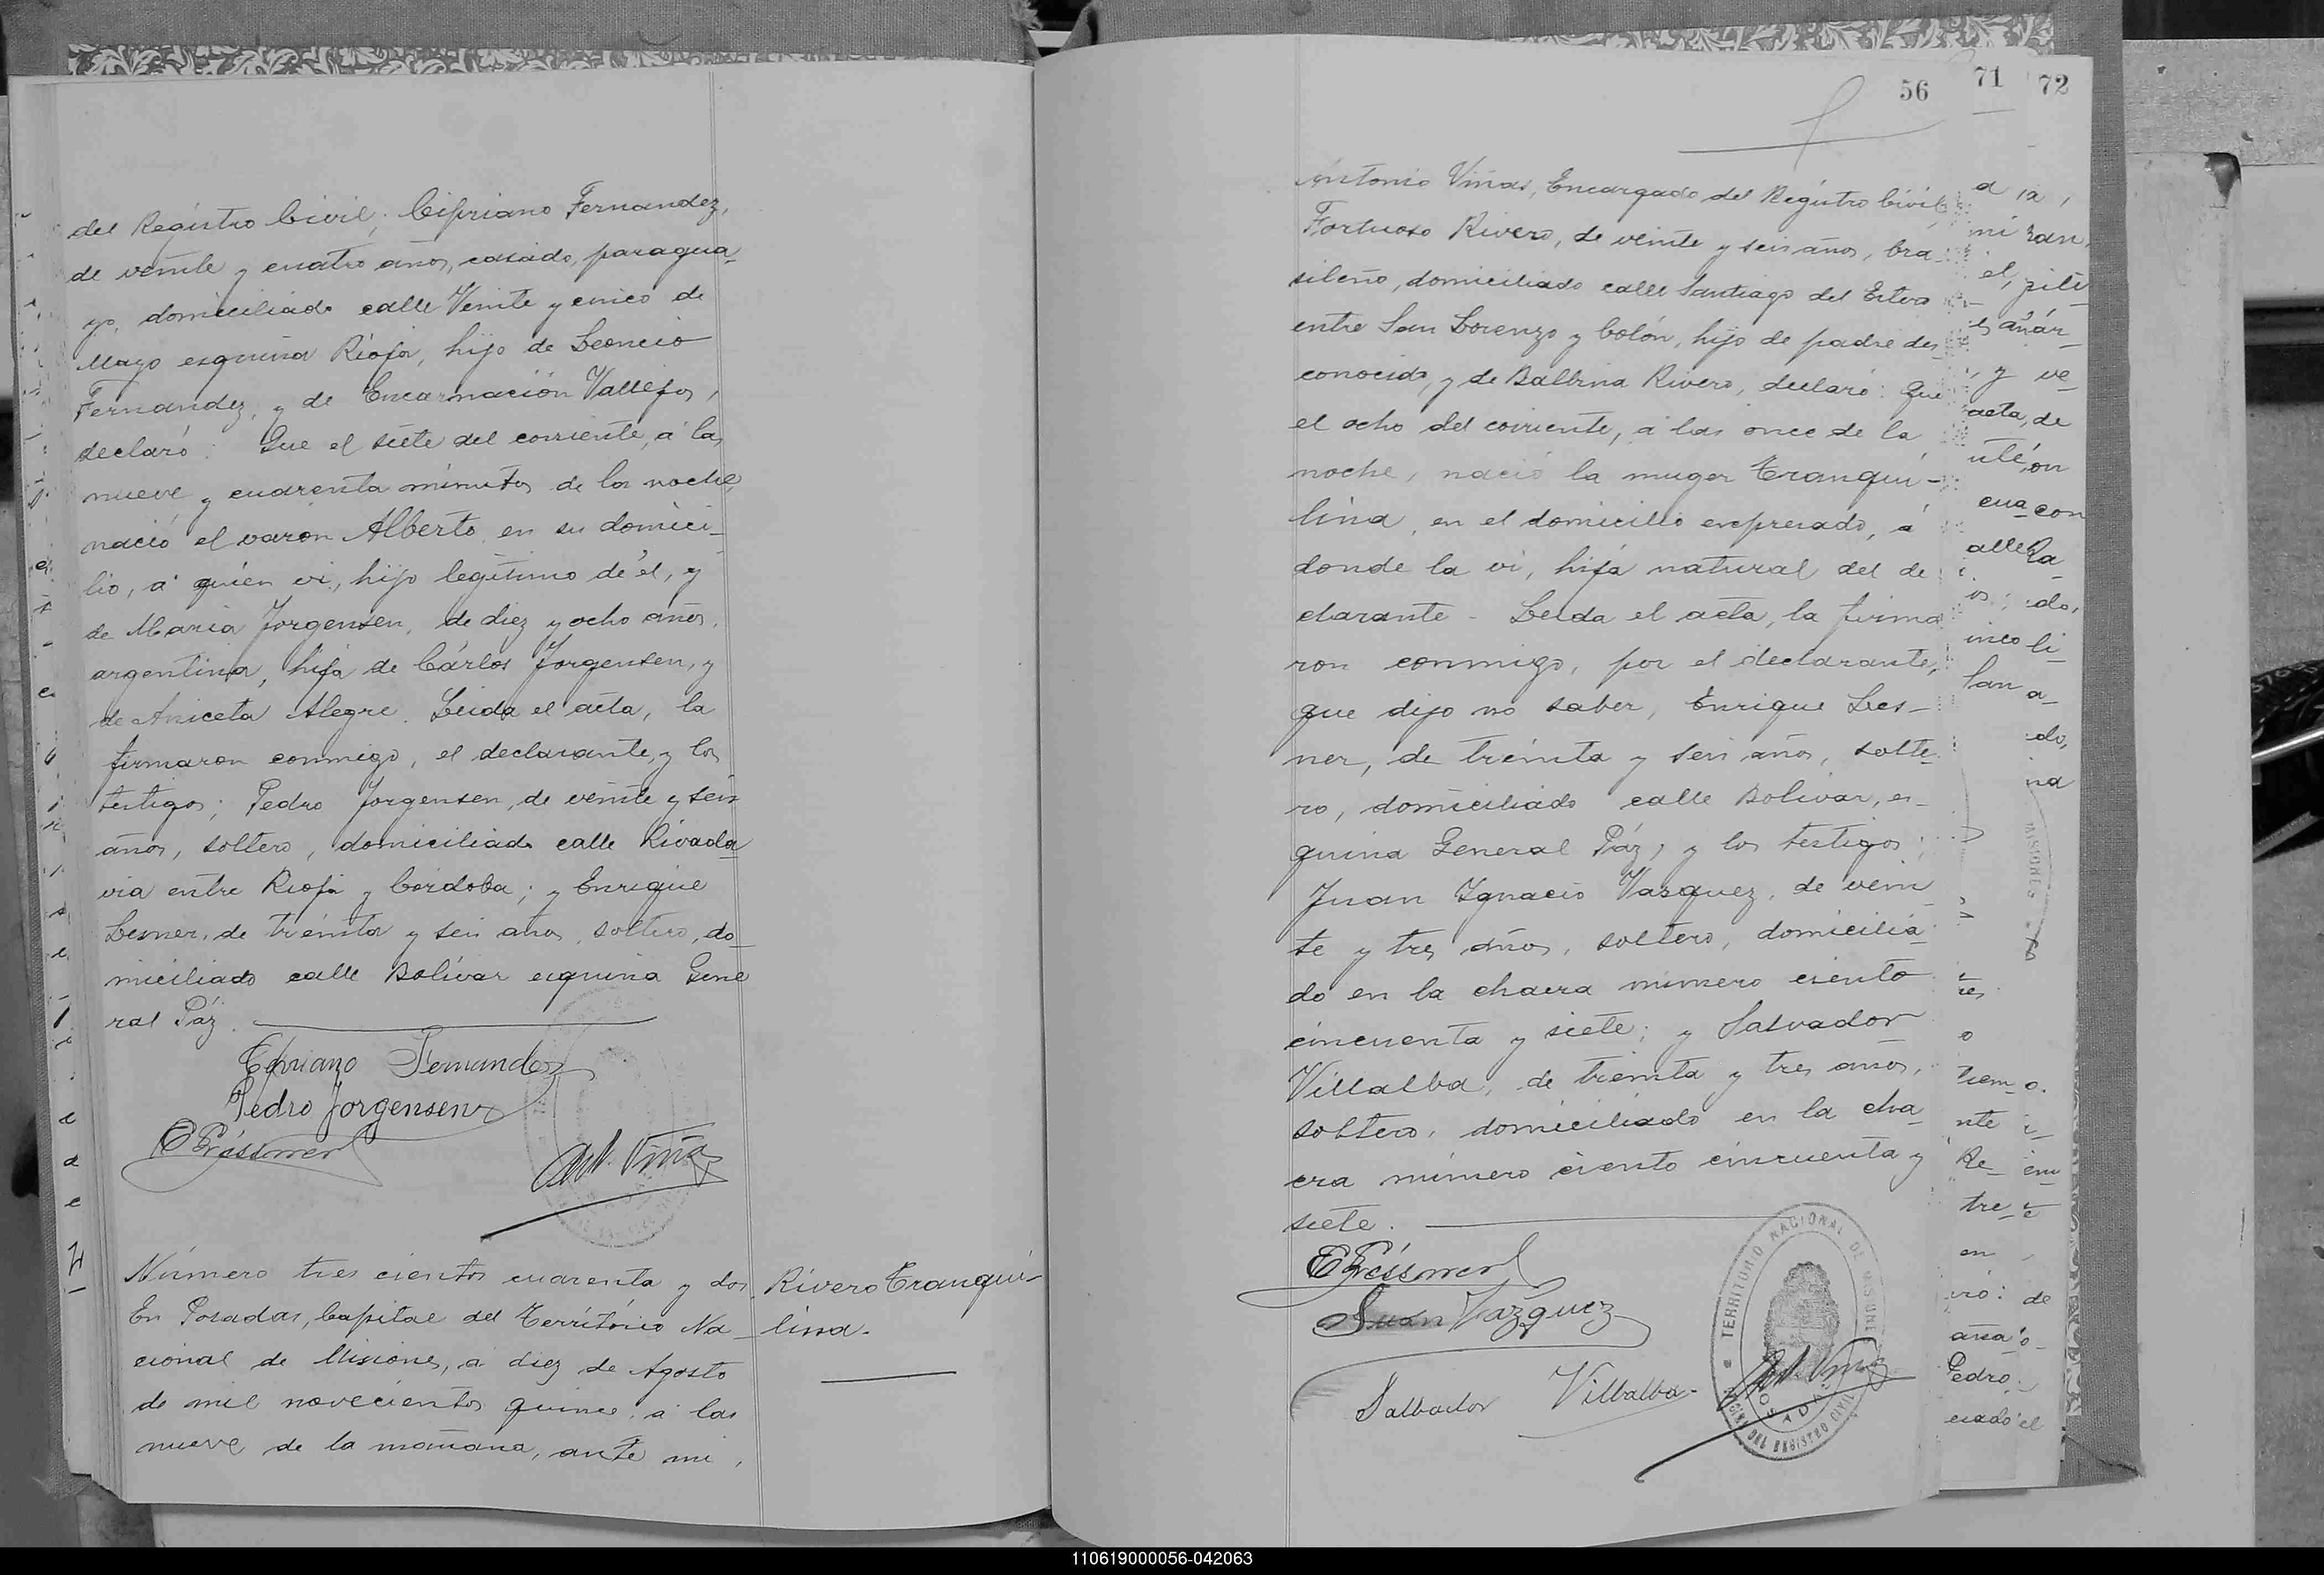 del Registro Civil; Cipriano Fernandez,
de veinte y cuatro años, casado, paragua-
yo, domiciliado calle Veinte y cinco de
Mayo esquina Rioja, hijo de Leoncio
Fernandez, y de Encarnación Vallejos,
declaró: Que el siete del corriente, á las
nueve y cuarenta minutos de la noche,
nació el varon Alberto, en su domici-
lio, á quien vi, hijo legítimo de él, y
de Maria Jorgensen, de diez y ocho años,
argentina, hija de Cárlos Jorgensen, y
de Aniceta Alegre. Leida el acta, la
firmaron conmigo, el declarante, y los
testigos; Pedro Jorgensen, de veinte y seis
años, soltero, domiciliado calle Rivada-
via entre Rioja y Córdoba; y Enrique
Lesner, de treinta y seis años, soltero, do-
miciliado calle Bolívar esquina Gene
ral Páz.
Cipriano Fernandez
Pedro Jorgensen
Ant. Viñas
Número tres cientos cuarenta y dos
En Posadas, Capital del Território Na-
cional de Misiones, á diez de Agosto
de mil novecientos quince, á las
nueve de la mañana, ante mi,
Rivero Tranqui-
lina.
56
71
72
Antonio Viñas, Encargado del Registro Civil,
Fortuoso Rivero, de veinte y seis años, bra-
sileño, domiciliado calle Santiago del Estero
entre San Lorenzo y Colón, hijo de padre des
conocido, y de Balbina Rivero, declaró: Que
el ocho del corriente, á las once de la
noche, nació la muger Tranqui-
lina, en el domicilio expresado, á
donde la vi, hija natural del de
clarante - Leida el acta, la firma
ron conmigo, por el declarante,
que dijo no saber, Enrique Les-
ner, de treinta y seis años, solte-
ro, domiciliado calle Bolívar, es-
quina General Páz, y los testigos;
Juan Ignacio Vasquez, de vein
te y tres años, soltero, domicilia-
do en la chacra número ciento
cincuenta y siete; y Salvador
Villalba, de treinta y tres años,
soltero, domiciliado en la cha
cra número ciento cincuenta y
siete.
Juan Vazquez
Salbador Villalba-
Ant. Viñas
TERRITORIO NACIONAL DE MISIONES
OFICINA DEL REGISTRO CIVIL
POSADAS
110619000056-042063